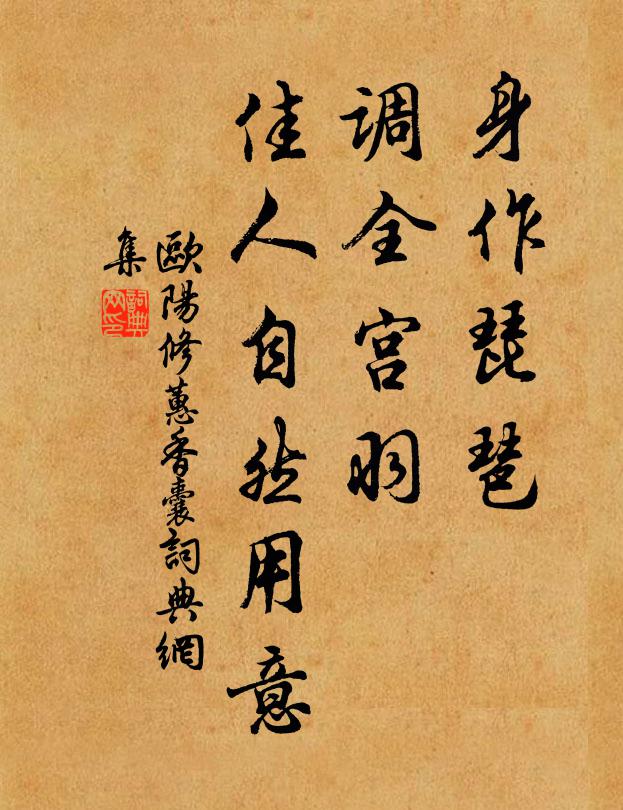 身作琵琶
調全宮羽
佳人自然用意
歐陽修蕙香囊詞典網
集
詞典
网印